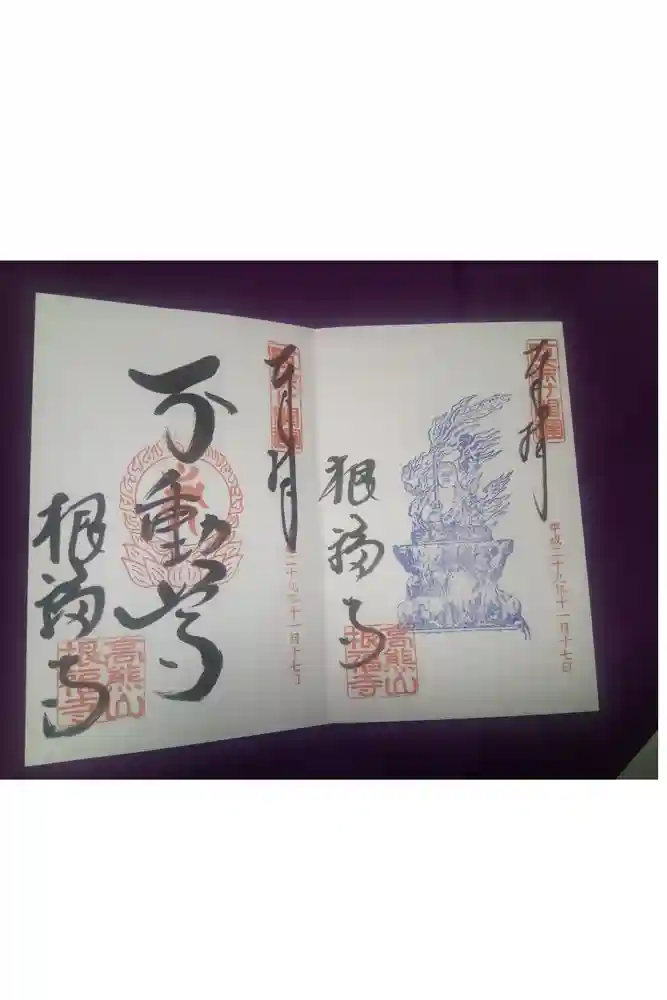 奉拝
平成二十九年十一月十七日
根福寺
高熊山
根福寺
奉拝
二十九年十一月十七日
不動尊
根福寺
高熊山
根福寺